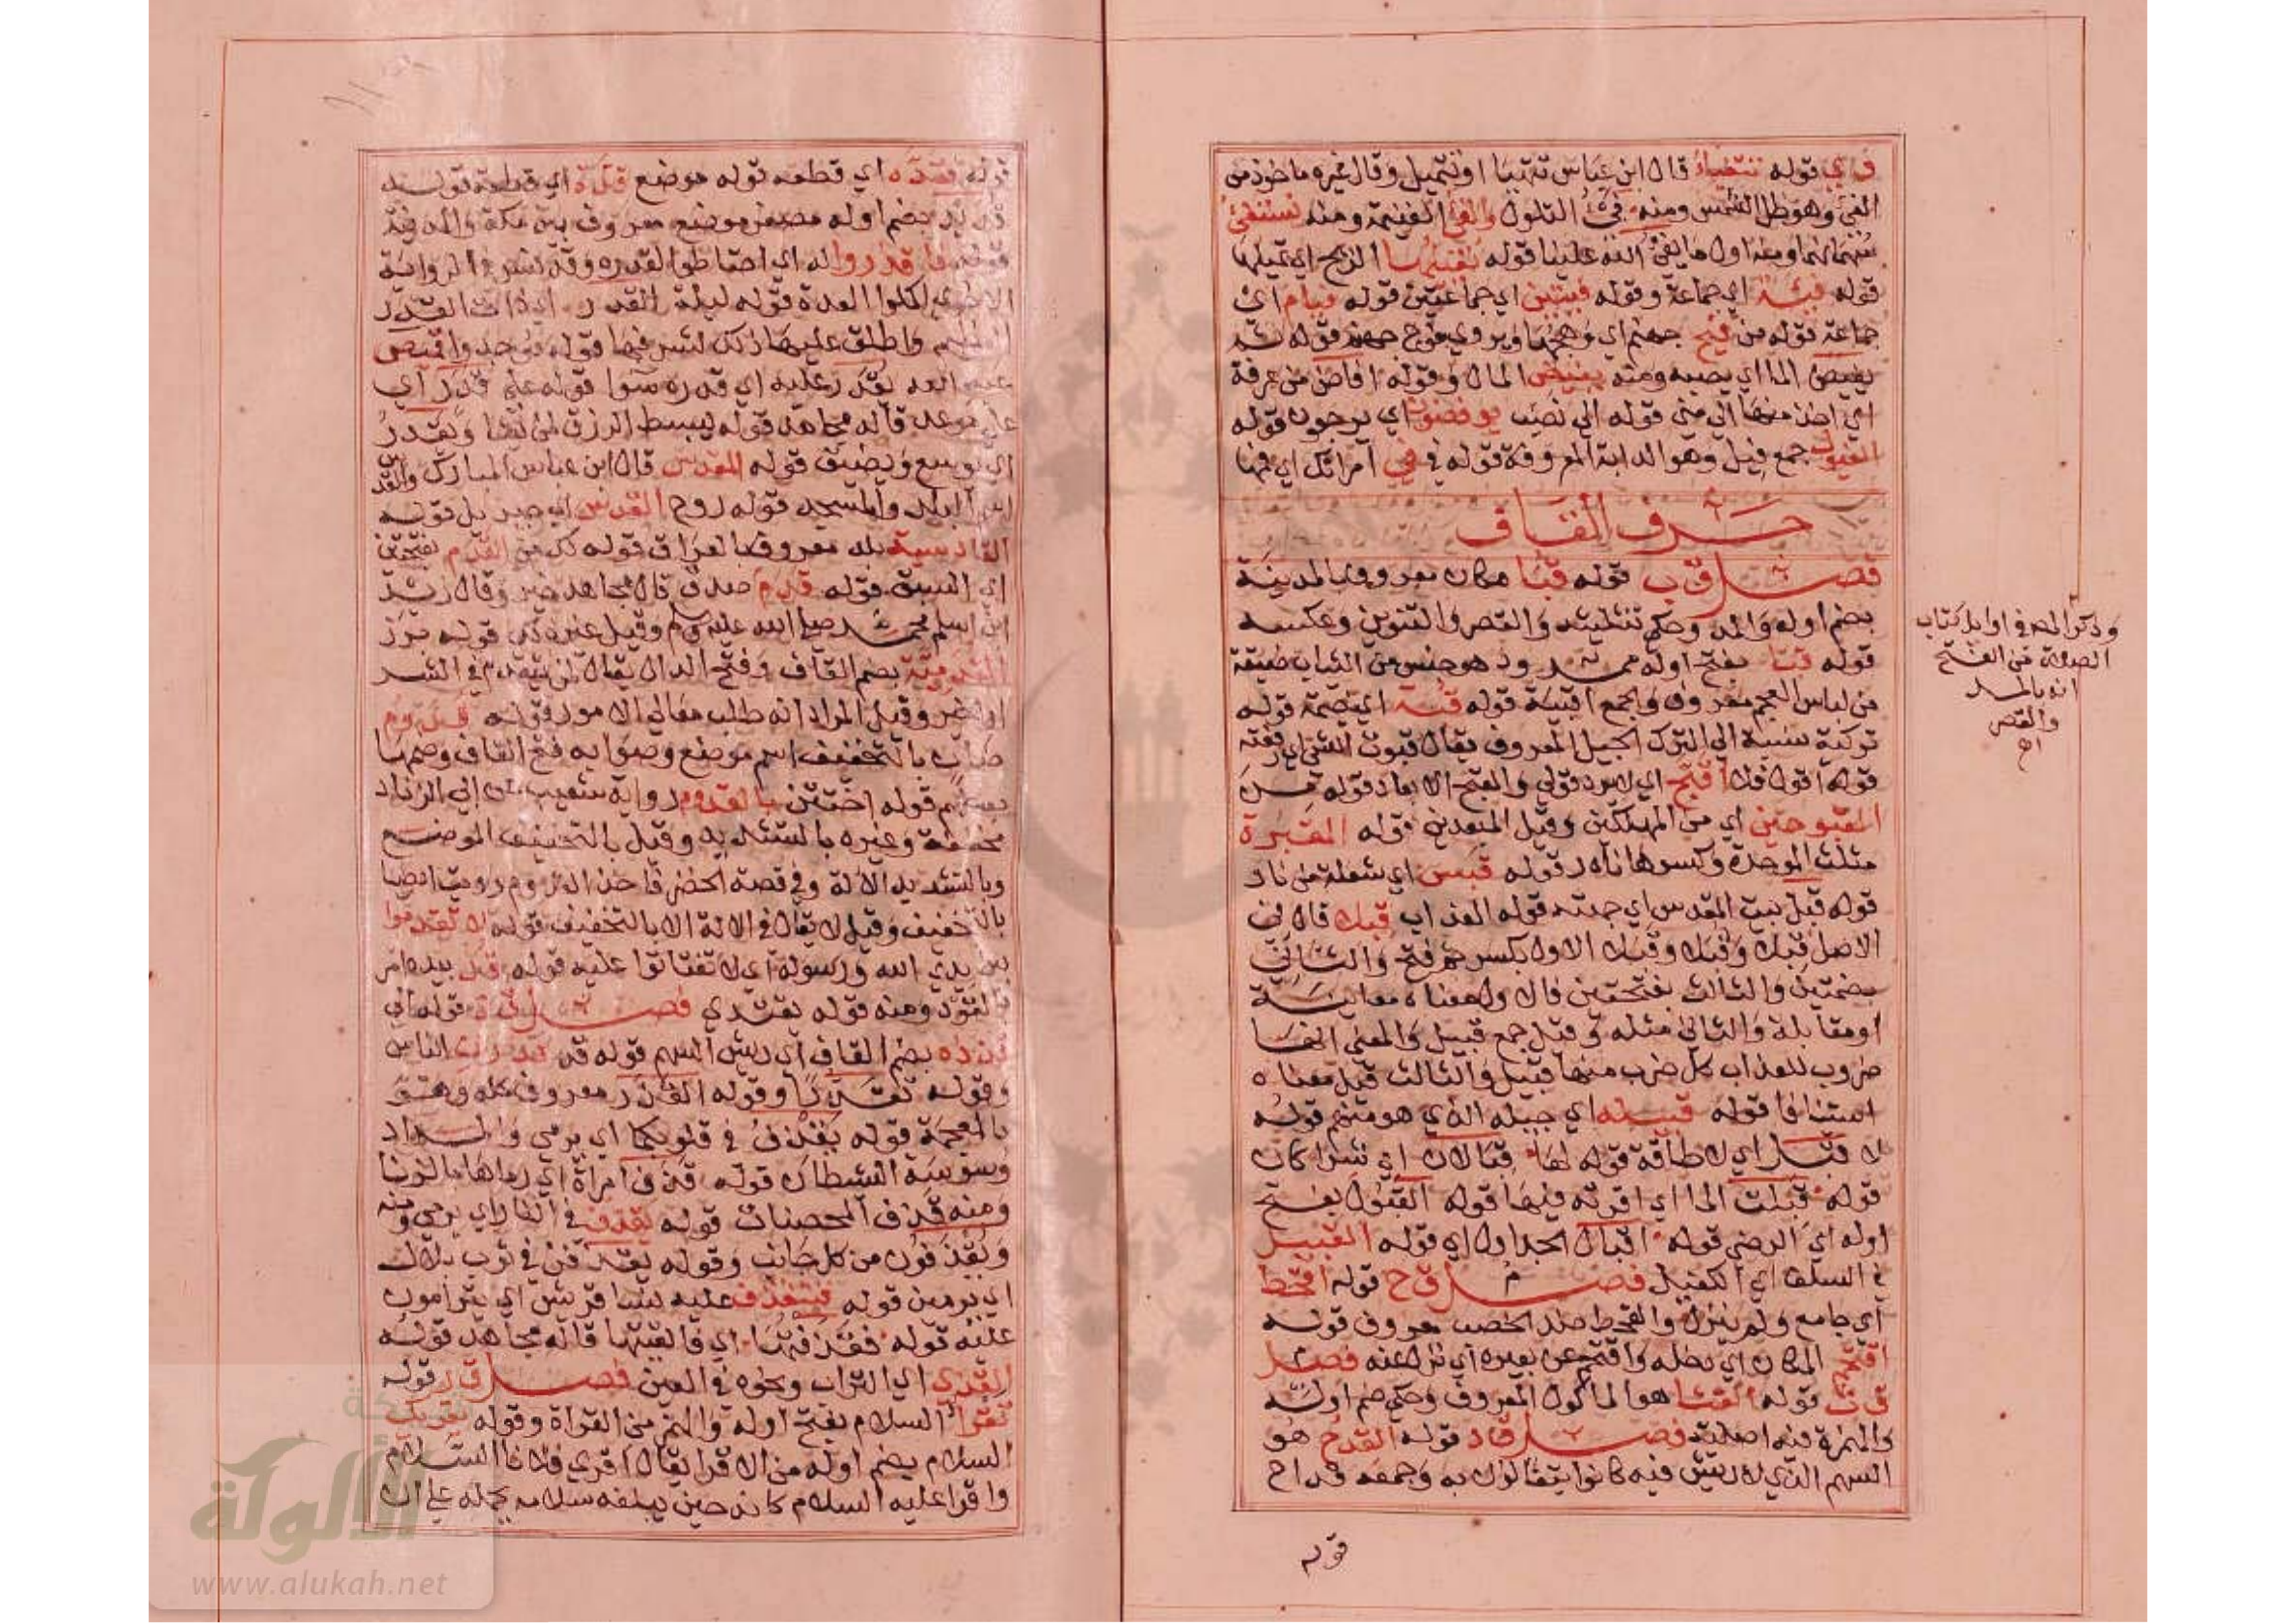 ف ي قوله تتفيأ قال ابن عباس تتهيأ او تتميل وقال غيره ماخوذ من
الفيء وهو ظل الشمس ومنه فيء التلول والفيء الغنيمة ومنه نستفيء
سهمانهما ومنه اول ما يفيء الله علينا قوله تفيئها الريح اي تميلها
قوله فيئة اي جماعة وقوله فيئتين اي جماعتين قوله فيام اي
جماعة قوله من فيح جهنم اي وهجها ويروي فوح جهنم قوله
يفيض الما اي يصبه ومنه يفيض المال وقوله افاض من عرفة
اي منها الي مني قوله الي نصب يوفضون اي يرجعون قوله
الفيول جمع فيل وهو الدابة المعروفة قوله في في امراتك اي فمها
حرف القاف
فصل ق ب قوله قبا مكان معروف بالمدينة
بضم اوله والمد وحكي تثليثه والقصر والتنوين وعكسه
قوله قبا بفتح اوله ممدود هو جنس من الثياب ضيقة
من لباس العجم معروف والجمع اقبية قوله قبة اي خيمة قوله
تركية نسبة الي الترك الجيل المعروف يقال قبوت الشي اي رفعته
قوله اقول فلا اقبح اي لا يرد قولي والقبح الابعاد قوله من
المقبوحين اي من المهلكين وقيل المبعدين قوله المقبرة
مثلث الموحدة وكسرها نادر قوله قبس اي شعلة من نار
قوله قبل بيت المقدس اي جهته قوله العذاب قبلا قال في
الاصل قبلا وقبلا وقبلا الاول بكسر ثم فتح والثاني
بضمتين والثالث بفتحتين فالاول معناه معاينة
او مقابلة والثاني مثله وقيل جمع قبيل والمعني انها
ضروب للعذاب كل ضرب منها قبيل والثالث قيل معناه
استئنافا قوله قبيله اي جيله الذي هو منهم قوله
لا قبل اي لا طاقة قوله لها قبالان اي شراكان
قوله قبلت الما اي اقرته فيها قوله القبول بفتح
اوله اي الرضي قوله اقبال الجداول اي قوله القبيل
في السلف اي الكفيل فصل ق ح قوله اقحط
اي جامع ولم ينزل والقحط ضد الخصب معروف قوله
اقتحم المكان اي دخله واقتحم عن بعيره اي نزل عنه فصل
ق ث قوله القثا هو الماكول المعروف وحكي ضم اوله
والهمزة فيه اصلية فصل ق د قوله القدح هو
السهم الذي لا ريش فيه كانوا يتفالون به وجمعه قداح
قوله
وذكر المص في اوايل كتاب
الصلاة من الفتح
انه بالمد
والقصر
اه
قوله فقده اي قطعه قوله موضع قده اي قطعة قوله
قديد بضم اوله مصغر موضع معروف بين مكة والمدينة
قوله فاقدروا له اي احتاطوا لقدره وقد فسر في الرواية
الاخري اكملوا العدة قوله ليلة القدر اي ذات القدر
العظيم واطلق عليها ذلك لشرفها قوله فوجدوا قميص
عبد الله يقدر عليه اي قدره سوا قوله علي قدر اي
علي موعد قاله مجاهد قوله يبسط الرزق لمن يشا ويقدر
اي يوسع ويضيق قوله المقدس قال ابن عباس المبارك والقدس
اسم البلد والمسجد قوله روح القدس اي جبريل قوله
القادسية بلد معروف بالعراق قوله من القدم بفتحتين
اي السبق قوله قدم صدق قال مجاهد خير وقال زيد
ابن اسلم محمد صلي الله عليه وسلم وقيل غيره قوله برز
القدمية بضم القاف وفتح الدال يقال لمن يتقدم في الشر
او الخير وقيل المراد انه طلب معالي الامور قوله قدوم
ضان بالتخفيف اسم موضع وصوابه فتح القاف وضمها
بعضهم قوله اختتن بالقدوم رواية شعيب عن ابي الزناد
مخففة وغيره بالتشديد وقيل بالتخفيف الموضع
وبالتشديد الالة وفي قصة الخضر فاخذ القدوم رويت ايضا
بالتخفيف وقيل لا يقال في الالة الا بالتخفيف قوله لا تقدموا
بين يدي الله ورسوله اي لا تفتاتوا عليه قوله قد بيده امر
بالقود ومنه قوله يقتدي فصل ق ذ قوله الي
قذذه بضم القاف اي ريش السهم قوله قد قذرني الناس
وقوله تقذرا وقوله القذر معروف كله وهو
بالمعجمة قوله يقذف في قلوبكما اي يرمي والمراد
وسوسة الشيطان قوله قذف امراة اي رماها بالزنا
ومنه قذف المحصنات قوله يقذف في النار اي يرمي ومنه
ويقذفون من كل جانب وقوله يقذفن في ثوب بلال
اي يرمين قوله فيتقذف عليه نسا قريش اي يترامون
عليه قوله فقذفتها اي فالقيتها قاله مجاهد قوله
القذي اي التراب ونحوه في العين فصل ق ر قوله
تقرا السلام بفتح اوله والهمز من القراة وقوله يقريك
السلام بضم اوله من الاقرا يقال اقري فلانا السلام
واقرا عليه السلام كانه حين يبلغه سلامه يحمله علي ان
الألوكة
www.alukah.net